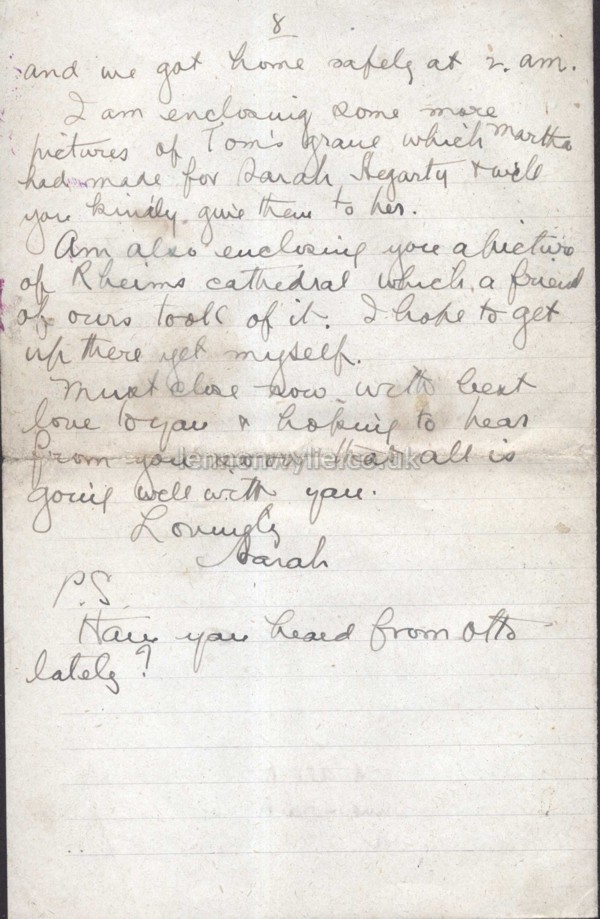 8
and we got home safely at 2. am.
I am enclosing some more
pictures of Tom's grave which Martha
had made for Sarah Hegarty & will
you kindly give them to her.
Am also enclosing you a picture
of Rheims cathedral which a friend
of ours took of it. I hope to get
up there yet myself.
Must close now with best
love to you & hoping to hear
from you soon that all is
lennonwylie.co.uk
going well with you.
Lovingly
Sarah
P.S.
Have you heard from Otto
lately?